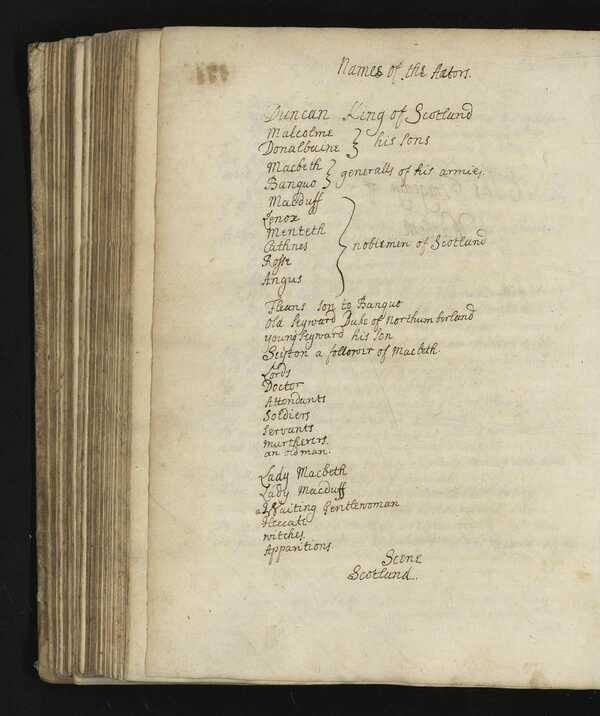 Names of the Actors.
Duncan King of Scotland
Malcolme
Donalbaine } his sons
Macbeth
Banquo } generalls of his armies.
Macduff
Lenox
Menteth
Cathnes } noblemen of Scotland
Rosse
Angus
Fleans son to Banquo
Old Seyward Duke of Northumberland
young Seyward his son
Seiton a follower of Macbeth.
Lords
Doctor
Attendants
Soldiers
Servants
murtherers.
an old man.
Lady Macbeth
Lady Macduff
a Waiting Gentlewoman
Heccate
witches.
Apparitions.
Scene
Scotland.